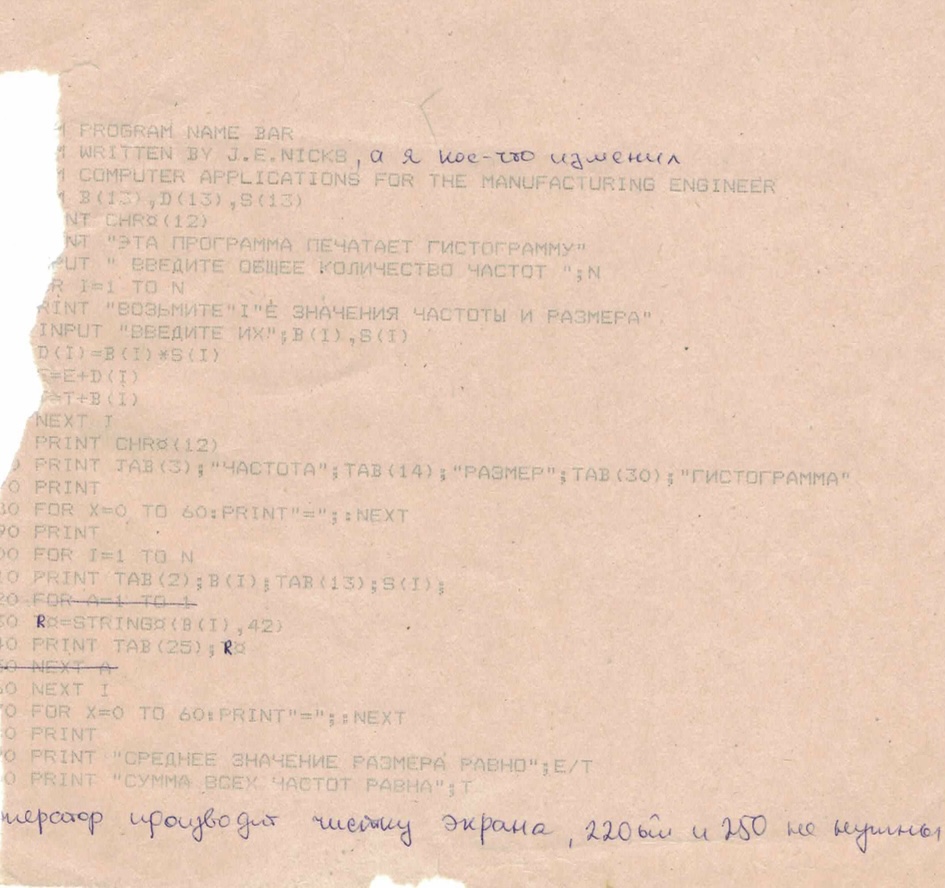 M PROGRAM NAME BAR
M WRITTEN BY J.E.NICKS, а я кое-что изменил
M COMPUTER APPLICATIONS FOR THE MANUFACTURING ENGINEER
M B(13),D(13),S(13)
INT CHR¤(12)
INT "ЭТА ПРОГРАММА ПЕЧАТАЕТ ГИСТОГРАММУ"
PUT " ВВЕДИТЕ ОБЩЕЕ КОЛИЧЕСТВО ЧАСТОТ ";N
R I=1 TO N
RINT "ВОЗЬМИТЕ"I"Е ЗНАЧЕНИЯ ЧАСТОТЫ И РАЗМЕРА"
INPUT "ВВЕДИТЕ ИХ";B(I),S(I)
D(I)=B(I)*S(I)
E=E+D(I)
T=T+B(I)
NEXT I
PRINT CHR¤(12)
0 PRINT TAB(3);"ЧАСТОТА";TAB(14);"РАЗМЕР";TAB(30);"ГИСТОГРАММА"
70 PRINT
80 FOR X=0 TO 60:PRINT"=";:NEXT
90 PRINT
00 FOR I=1 TO N
10 PRINT TAB(2);B(I);TAB(13);S(I);
20 FOR A=1 TO 1
30 R¤=STRING¤(B(I),42)
40 PRINT TAB(25);R¤
50 NEXT A
60 NEXT I
70 FOR X=0 TO 60:PRINT"=";:NEXT
80 PRINT
90 PRINT "СРЕДНЕЕ ЗНАЧЕНИЕ РАЗМЕРА РАВНО";E/T
00 PRINT "СУММА ВСЕХ ЧАСТОТ РАВНА";T
оператор производит чистку экрана, 220ый и 250 не нужны